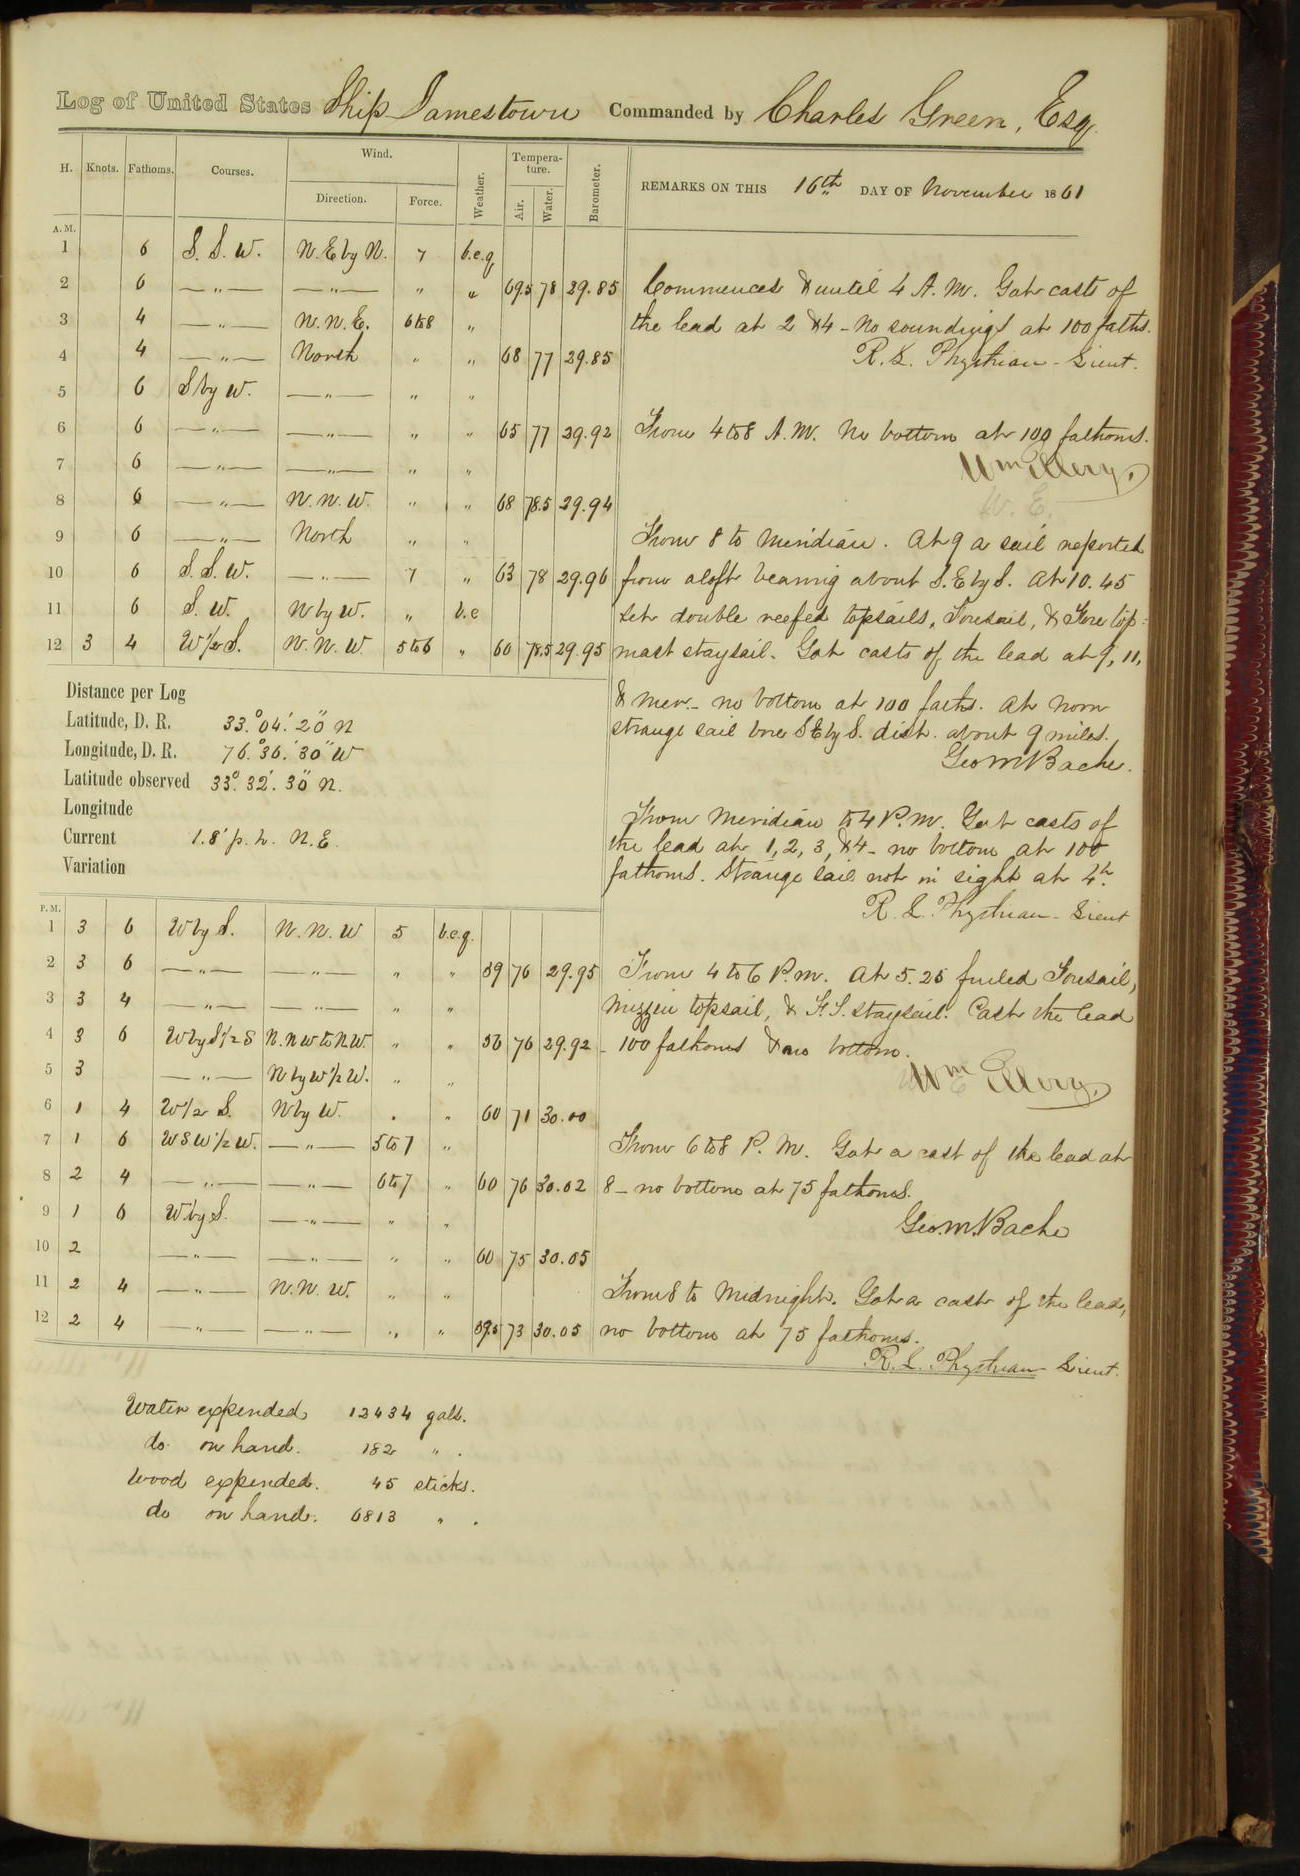 Log of United States Ship Jamestown Commanded by Charles Green, Esq.
H. Knots. Fathoms. Courses. Wind. Direction. Force. Weather. Temperature. Air. Water. Barometer. REMARKS ON THIS 16th DAY OF November 1861
A.M.
1 6 S. S. W. N. E by N. 7 b.c.q
2 6 —"— —"— " " 69.5 78 29.85
3 4 —"— N. N. E. 6 to 8 "
4 4 —"— North " " 68 77 29.85
5 6 S by W. —"— " "
6 6 —"— —"— " " 65 77 29.92
7 6 —"— —"— " "
8 6 —"— N. N. W. " " 68 78.5 29.94
9 6 —"— North " "
10 6 S. S. W. —"— 7 " 63 78 29.96
11 6 S. W. N by W. " b.c
12 3 4 W 1/2 S. N. N. W. 5 to 6 " 60 78.5 29.95
Commences & until 4 A. M. Got casts of
the lead at 2 & 4 - No soundings at 100 faths.
R. L. Phythian - Lieut.
From 4 to 8 A. M. No bottom at 100 fathoms.
Wm Ellery.
W. E.
From 8 to Meridian. At 9 a sail reported
from aloft bearing about S. E by S. At 10. 45
set double reefed topsails, Foresail, & Fore top=
mast staysail. Got casts of the lead at 9, 11,
& mer. - no bottom at 100 faths. At noon
strange sail bore SE by S. dist. about 9 miles.
Geo M Bache.
Distance per Log
Latitude, D. R. 33.° 04.' 20" N
Longitude, D. R. 76.° 36.' 30" W
Latitude observed 33.° 32'. 30" N.
Longitude
Current 1.8' p. h. N. E.
Variation
From Meridian to 4 P. M. Got casts of
the lead at 1, 2, 3, & 4 - no bottom at 100
fathoms. Strange sail not in sight at 4h.
R. L. Phythian - Lieut
P.M.
1 3 6 W by S. N. N. W 5 b.c.q.
2 3 6 —"— —"— " " 59 76 29.95
3 3 4 —"— —"— " "
4 3 6 W by S 1/2 S N. N W to N W. " " 56 76 29.92
5 3 —"— N by W 1/2 W. " "
6 1 4 W 1/2 S. N by W. " " 60 71 30.00
7 1 6 W S W 1/2 W. —"— 5 to 7 "
8 2 4 —"— —"— 6 to 7 " 60 76 30.02
9 1 6 W by S. —"— " "
10 2 —"— —"— " " 60 75 30.05
11 2 4 —"— N. N. W. " "
12 2 4 —"— —"— " " 59.5 73 30.05
From 4 to 6 P. M. At 5. 25 furled Foresail,
mizzen topsail, & F. T. staysail. Cast the lead
- 100 fathoms & no bottom.
Wm Ellery.
From 6 to 8 P. M. Got a cast of the lead at
8 - no bottom at 75 fathoms.
Geo. M. Bache
From 8 to Midnight. Got a cast of the lead,
no bottom at 75 fathoms.
R. L. Phythian - Lieut.
Water expended 12434 galls.
do. on hand. 182 " .
Wood expended. 45 sticks.
do on hand. 6813 " .